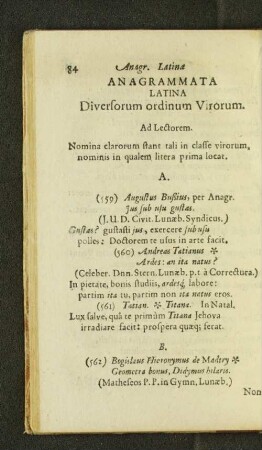 84 Anagr. Latina
ANAGRAMMATA
LATINA
Diversorum ordinum Virorum.
Ad Lectorem.
Nomina clarorum stant tali in classe virorum,
nominis in qualem litera prima locat.
A.
(559) Augustus Bussius, per Anagr.
Jus sub usu gustas.
(J. U. D. Civit. Lunæb. Syndicus.)
Gustas? gustasti jus, exercere sub usu
polles: Doctorem te usus in arte facit.
(560) Andreas Tatianus *
Ardes: an ita natus?
(Celeber. Dnn. Stern. Lunæb. p. t à Correctura.)
In pietate, bonis studiis, ardesq́; labore:
partim ita tu, partim non ita natus eros.
(561) Tatian. * Titana. In Natal.
Lux salve, quâ te primùm Titana Jehova
irradiare facit: prospera quæq́; ferat.
B.
(562) Bogislaus Hieronymus de Madtry *
Geometra bonus, Didymus hilaris.
(Matheseos P. P. in Gymn. Lunæb.)
Non